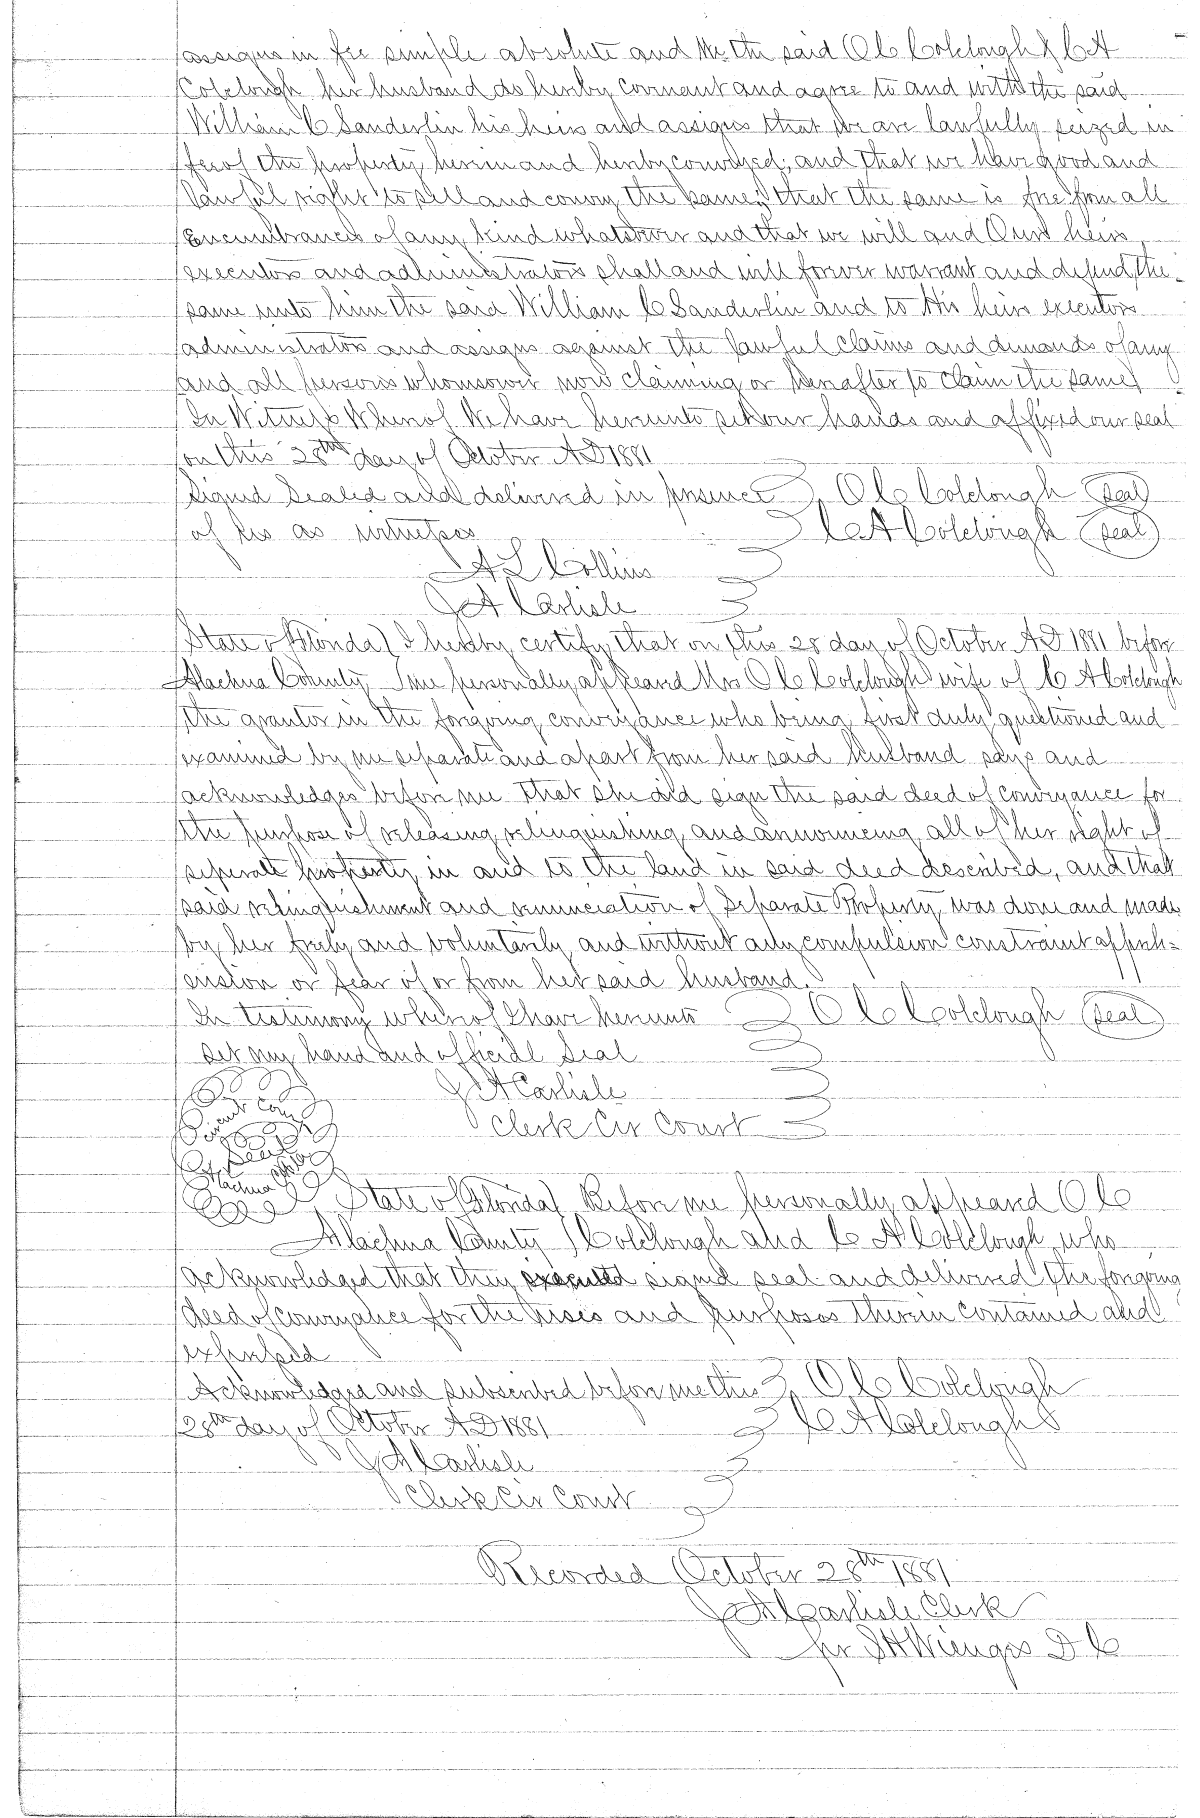 assigns in fee simple absolute and We the said O C Colclough & C A
Colclough her husband do hereby covenant and agree to and with the said
William C Sanderlin his heirs and assigns that we are lawfully seized in
fee of the property herein and hereby conveyed, and that we have good and
lawful right to sell and convey the same; that the same is free from all
Encumbrances of any kind whatsoever and that we will and Our heirs,
executors and administrators shall and will forever warrant and defend the
same unto him the said William C Sanderlin and to His heirs executors
administrators and assigns against the lawful claims and demands of any
and all persons whomsoever now claiming or hereafter to claim the same
In Witness Whereof We have hereunto set our hands and affixed our seal
on this 28th day of October AD 1881
Signed Sealed and delivered in presence O C Colclough (seal)
of us as witnesses C A Colclough (seal)
A L Collins
J A Carlisle
State of Florida I hereby certify that on this 28 day of October AD 1881 before
Alachua County me personally appeared Mrs O C Colclough wife of C A Colclough
the grantor in the forgoing conveyance who being first duly questioned and
examined by me separate and apart from her said husband says and
acknowledges before me that she did sign the said deed of conveyance for
the purpose of releasing, relinquishing and announcing all of her right of
seperate property in and to the land in said deed described, and that
said relinquishment and renunciation of Separate Property was done and made
by her freely and voluntarily and without any compulsion constraint appreh=
ension or fear of or from her said husband.
In testimony whereof I have hereunto O C Colclough (seal)
set my hand and official Seal
J A Carlisle
Clerk Cir Court
Circuit Court
Seal
Alachua
State of Florida Before me personally appeared O C
Alachua County Colclough and C A Colclough who
acknowledged that they executed signed seal and delivered the forgoing
deed of conveyance for the uses and purposes therein contained and
expressed
Acknowledged and subscribed before me this O C Colclough
28th day of October AD 1881 C A Colclough
J A Carlisle
Clerk Cir Court
Recorded October 28th 1881
J A Carlisle Clerk
per S H Wienges D C